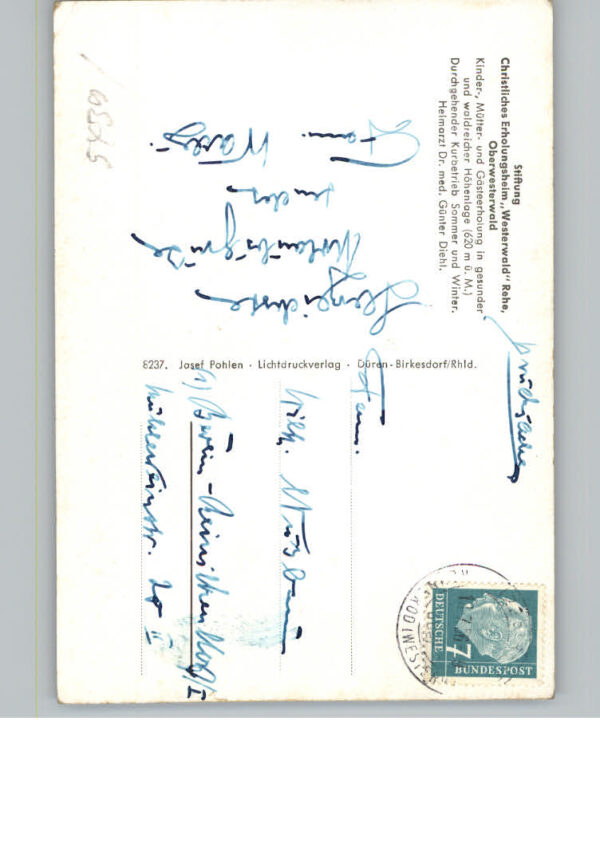 Stiftung
Christliches Erholungsheim „Westerwald" Rehe,
Oberwesterwald
Kinder-, Mütter- und Gästeerholung in gesunder
und waldreicher Höhenlage (620 m ü. M.)
Durchgehender Kurbetrieb Sommer und Winter.
Heimarzt Dr. med. Günter Diehl.
Herzlichste
Urlaubsgrüße
senden
Fam.
8237. Josef Pohlen · Lichtdruckverlag · Düren-Birkesdorf/Rhld.
Drucksache
Fam.
Wilh.
Berlin-
DEUTSCHE
BUNDESPOST
7